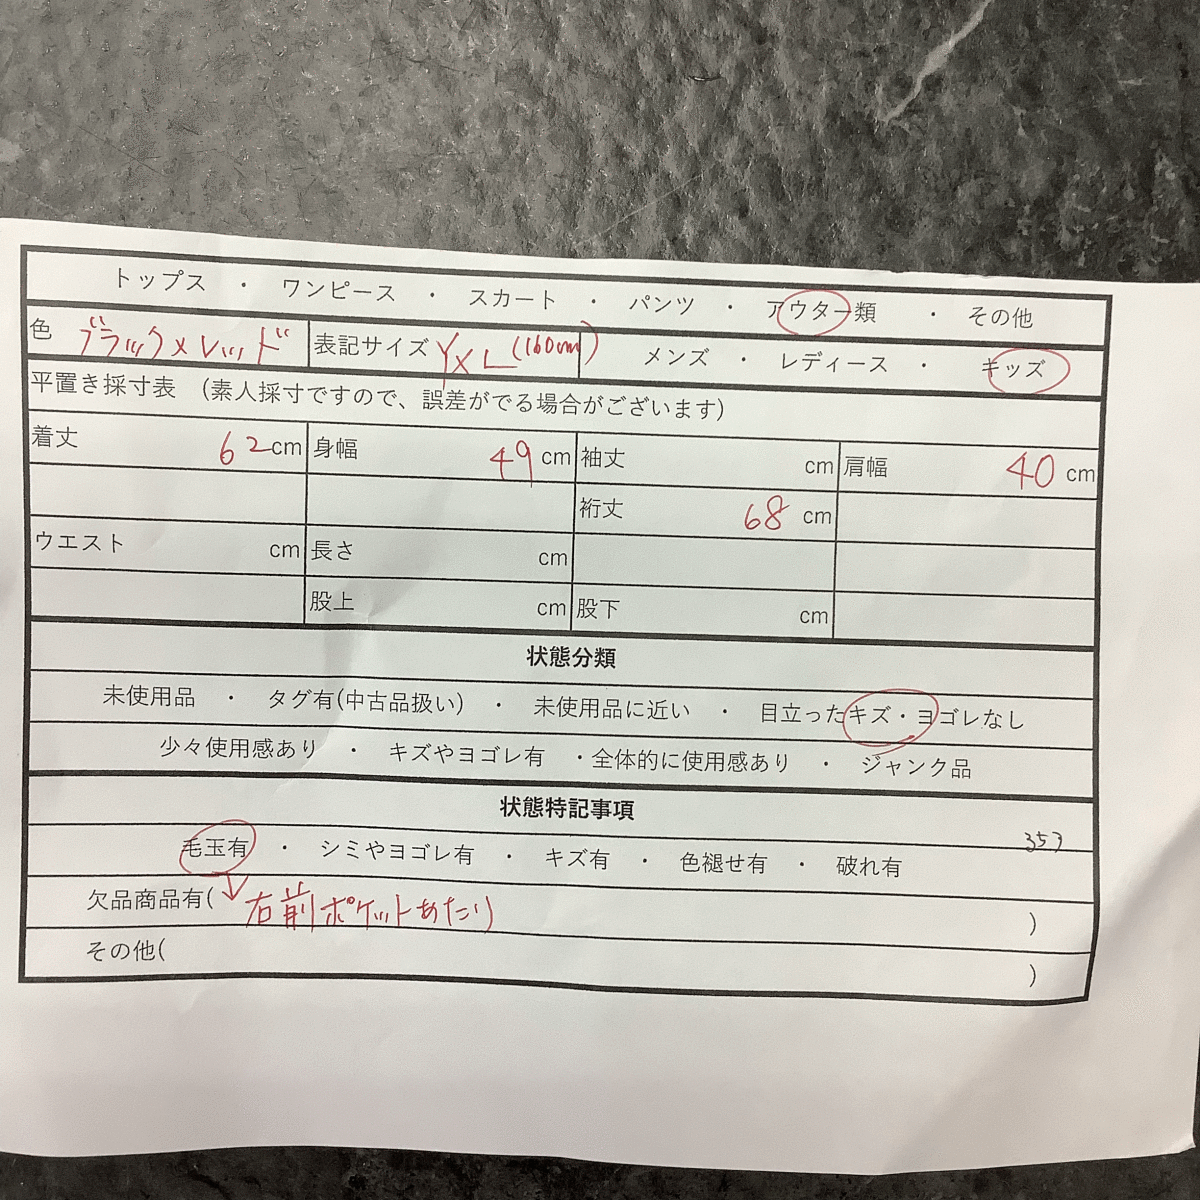 トップス ・ ワンピース ・ スカート ・ パンツ ・ アウター類 ・ その他
色 ブラック×レッド 表記サイズ YXL(160cm) メンズ ・ レディース ・ キッズ
平置き採寸表 (素人採寸ですので、誤差がでる場合がございます)
着丈 62cm 身幅 49cm 袖丈 cm 肩幅 40cm
裄丈 68cm
ウエスト cm 長さ cm
股上 cm 股下 cm
状態分類
未使用品 ・ タグ有(中古品扱い) ・ 未使用品に近い ・ 目立ったキズ・ヨゴレなし
少々使用感あり ・ キズやヨゴレ有 ・全体的に使用感あり ・ ジャンク品
状態特記事項
353
毛玉有 ・ シミやヨゴレ有 ・ キズ有 ・ 色褪せ有 ・ 破れ有
欠品商品有( 右前ポケットあたり )
その他( )